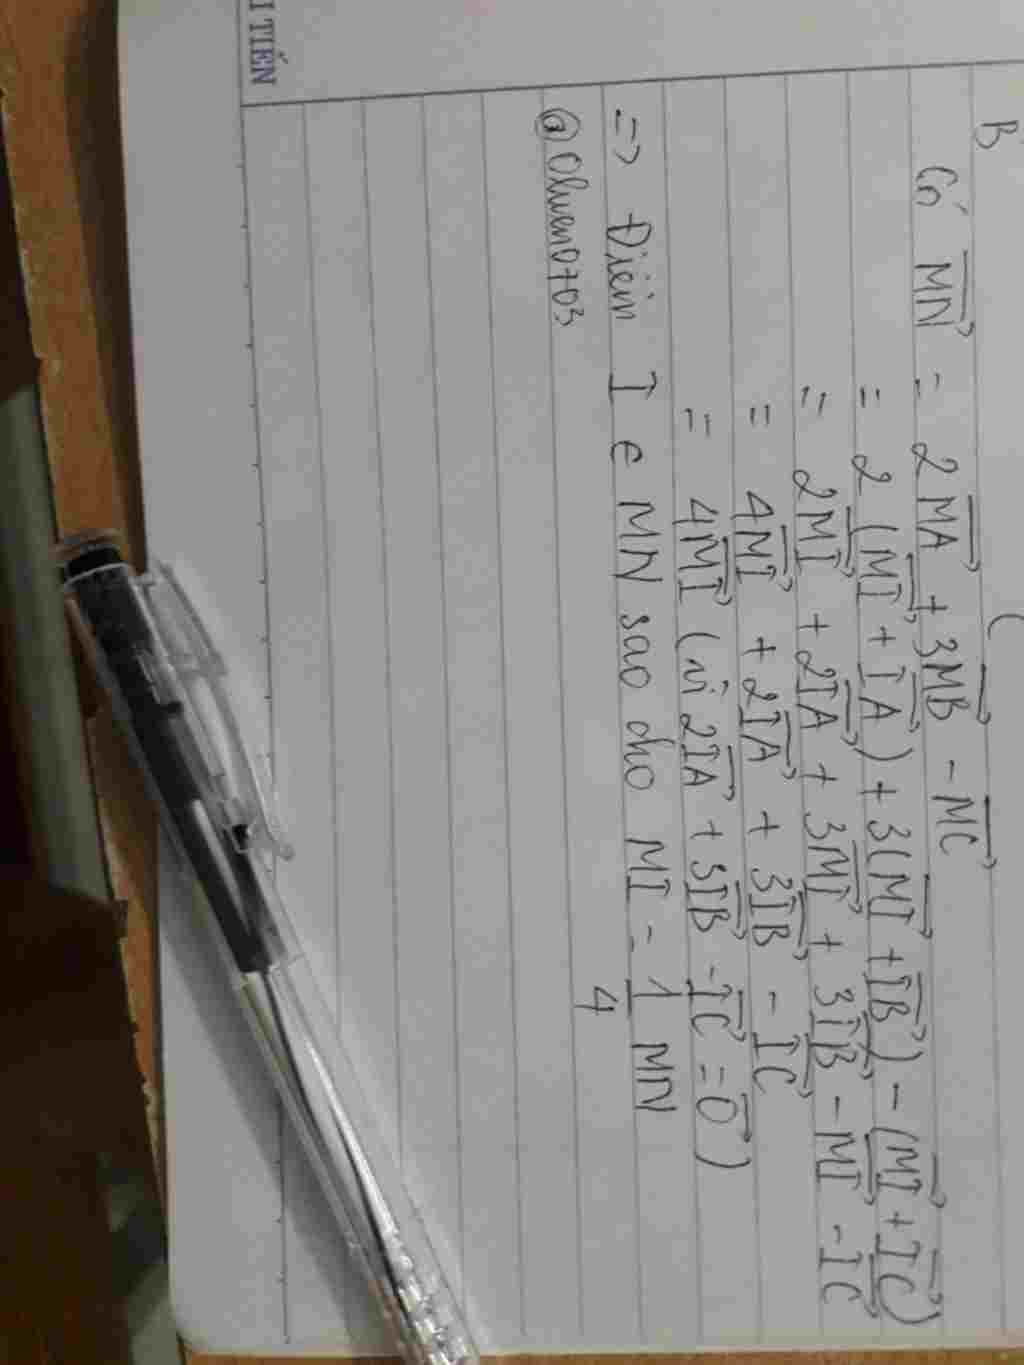 I TIẾN
B C
Có MN→ = 2MA→ + 3MB→ - MC→
= 2(MI→ + IA→) + 3(MI→ + IB→) - (MI→ + IC→)
= 2MI→ + 2IA→ + 3MI→ + 3IB→ - MI→ - IC→
= 4MI→ + 2IA→ + 3IB→ - IC→
= 4MI→ (vì 2IA→ + 3IB→ - IC→ = 0→)
=> Điểm I ∈ MN sao cho MI = 1/4 MN